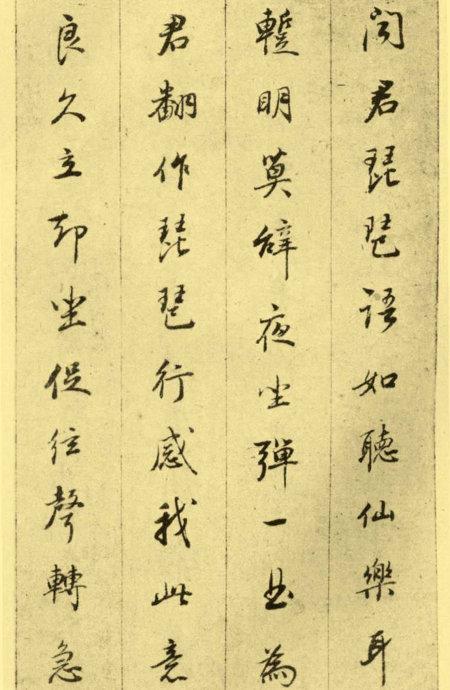 聞君琵琶語如聽仙樂耳
蹔明莫辭夜坐彈一曲為
君翻作琵琶行感我此意
良久立却坐促絃聲轉急